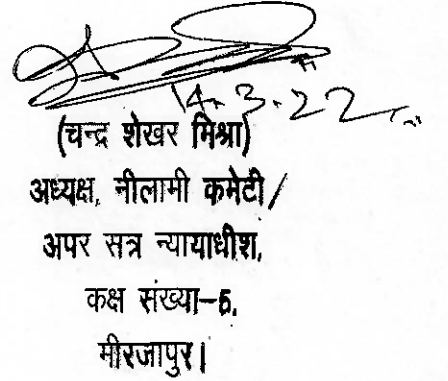 14.3.22
(चन्द्र शेखर मिश्रा)
अध्यक्ष, नीलामी कमेटी/
अपर सत्र न्यायाधीश,
कक्ष संख्या-5,
मीरजापुर।